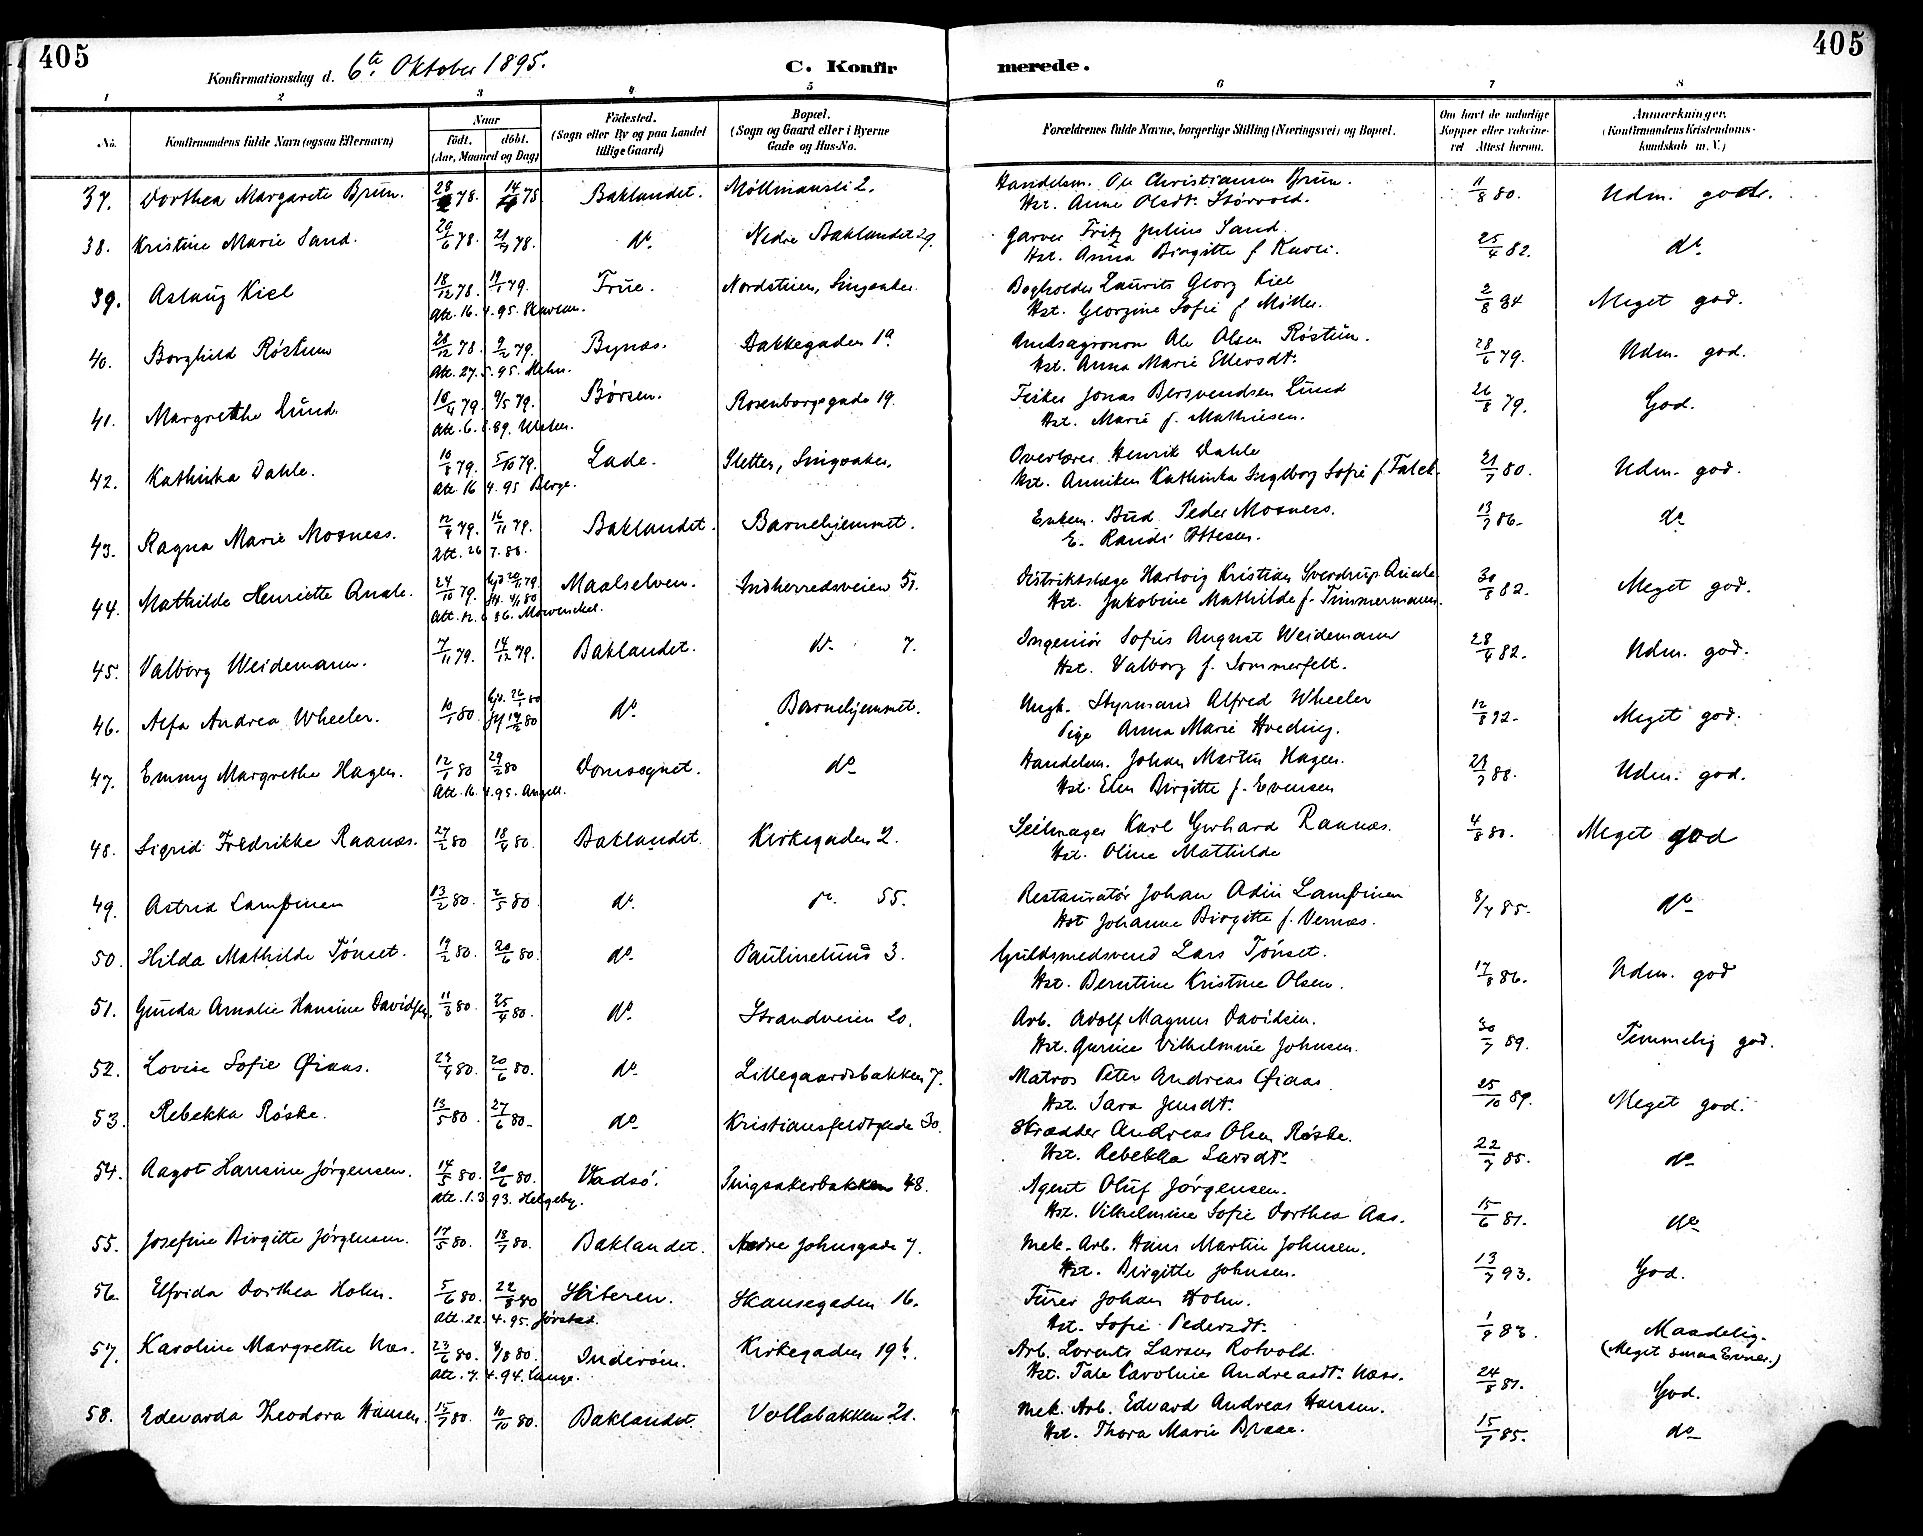 405
405
Konfirmationsdag d. 6te Oktober 1895.
C. Konfir
merede.
1 2 3 4 5 6 7 8
No.
Konfirmandens fulde Navn (ogsaa Efternavn)
Naar
födt. döbt.
(Aar, Maaned og Dag)
Födested.
(Sogn eller By og paa Landet
tillige Gaard)
Bopæl.
(Sogn og Gaard eller i Byerne
Gade og Hus-No.
Forældrenes fulde Navne, borgerlige Stilling (Næringsvei) og Bopæl.
Om havt de naturlige
Kopper eller vakcine-
ret Attest herom.
Anmærkninger.
(Konfirmandens Kristendoms-
kundskab m. V.)
37. Dorthea Margarete Brun. 78. 78 Baklandet. Möllmansli 2. Handelsm. Ole Christiansen Brun. 11/8 80. Udm. god.
Hst. Anna Olsdt. Störvold.
38. Kristine Marie Sand. 20/6 78. 21/7 78. do. Nedre Baklandet 29. Garver Fritz Julius Sand 25/4 82. do.
Hst. Anna Birgitte f
39. Aslaug Kiel 18/12 78. 19/1 79. Frue. Nordsteien, Singsaker. Bogholder Laurits Georg Kiel 2/8 84 Meget god.
Att. 16. 4. 95.
Hst. Georgine Sofie f Möller.
40. Borghild Röstum 28/12 78. 9/2 79. Bynæs. Bakkegaden 1a Amdsagronom Ole Olsen Röstum. 28/6 79. Udm. god.
Att. 27. 5. 95.
Hst. Anna Marie Ellevsdt.
41. Margrethe Lund. 10/4 79. 4/5 79. Börsen. Rosenborgsgade 19. Fisker Jonas Bersvendsen Lund 26/8 79. God.
Hst. Marie f. Mathiesen.
42. Kathinka Dahle. 10/8 79. 5/10 79. Lade. Sletten, Singsaker. Overlærer Henrik Dahle 21/7 80. Udm. god.
Att. 16 4. 95 Berge.
Hst. Anniken Kathinka Ingeborg Sofie f Falck.
43. Ragna Marie Mosness. 12/9 79. 16/11 79. Baklandet. Barnehjemmet. Enkem. Bud Peder Mosness. 13/7 86. do
Att. 26 7. 88.
E. Randi Ottesen.
44. Mathilde Henriette Qvale. 24/10 79. Maalselven. Indherredsveien 51. Distriktslæge Hartvig Kristian Sverdrup Qvale. 30/8 82. Meget god.
Hst. Jakobine Mathilde f. Timmermann.
45. Valborg Weidemann. 7/11 79. 14/12 79. Baklandet. do. 7. Ingeniör Sofus August Weidemann 28/4 82. Udm. god.
Hst. Valborg f. Sommerfelt.
46. Alfa Andrea Wheeler. 10/1 80. do. Barnehjemmet. Ungk. Styrmand Alfred Wheeler 12/8 92. Meget god.
Pige Anna Marie Hveding.
47. Emmy Margrethe Hagen. 12/1 80 29/2 80 Domsognet. do Handelsm. Johan Martin Hagen. 88. Udm. god.
Att. 16. 4. 95. Angell.
Hst. Elen Birgitte f. Evensen
48. Sigrid Fredrikke Raanæs. 27/2 80 18/4 80. Baklandet. Kirkegaden 2. Seilmager Karl Gerhard Raanæs. 4/8 80. Meget god
Hst. Oline Mathilde
49. Astrid Lampinen 13/2 80. 2/5 80 do. do. 55. Restauratör Johan Adin Lampinen 8/7 85. do
Hst Johanne Birgitte f. Vernæs.
50. Hilda Mathilde Tönset. 19/2 80. 20/6 80. do. Paulinelund 3. Guldsmedsvend Lars Tönset. 17/8 86. Udm. god
Hst. Berntine Kristine Olsen.
51. Gunda Amalie Hansine Davidsen. 11/3 80. 25/4 80. do. Strandveien 20. Arb. Adolf Magnus Davidsen. 30/7 89. Temmelig god.
Hst. Gurine Vilhelmine Johnsen.
52. Lovise Sofie Öiaas. 80. 20/6 80. do. Lillegaardsbakken 7. Matros Peter Andreas Öiaas 25/10 89. Meget god.
Hst. Sara Jensdt.
53. Rebekka Röske. 13/5 80. 27/6 80. do. Kristiansfeldtgade 30. Skrædder Andreas Olsen Röske. 22/7 85. do
Hst. Rebekka Larsdt.
54. Aagot Hansine Jörgensen. 14/5 80. 20/6 80. Vadsö. Singsakerbakken 48. Agent Oluf Jörgensen. 15/6 81. do
Att. 1. 3. 93. Helgeby.
Hst. Vilhelmine Sofie Dorthea Aas.
55. Josefine Birgitte Jörgensen. 17/5 80. 18/7 80. Baklandet. Nedre Johnsgade 7. Mek. Arb. Hans Martin Johnsen. 13/7 93. God.
Hst. Birgitte Johnsen.
56. Elfrida Dorthea Holm. 5/6 80. 22/8 80 Hiteren. Skansegaden 16. Furer Johan Holm. Maadelig.
Att. 22. 4. 95. Jörstad.
Hst. Sofie Pedersdt. (Meget smaa Evner.)
57. Karoline Margrethe Næs. 23/6 80. 80. Inderöen. Kirkegaden 19b. Arb. Lorents Larsen Rotvold. 24/8 81. God.
Att. 7. 4. 94. Lange.
Hst. Tale Karoline Andreasdt. Næss.
58. Edevarda Theodora Hansen. 15/7 80. 10/10 80. Baklandet. Vollabakken 21. Mek. Arb. Edvard Andreas Hansen. 15/7 85. do
Hst. Thora Marie Braae.